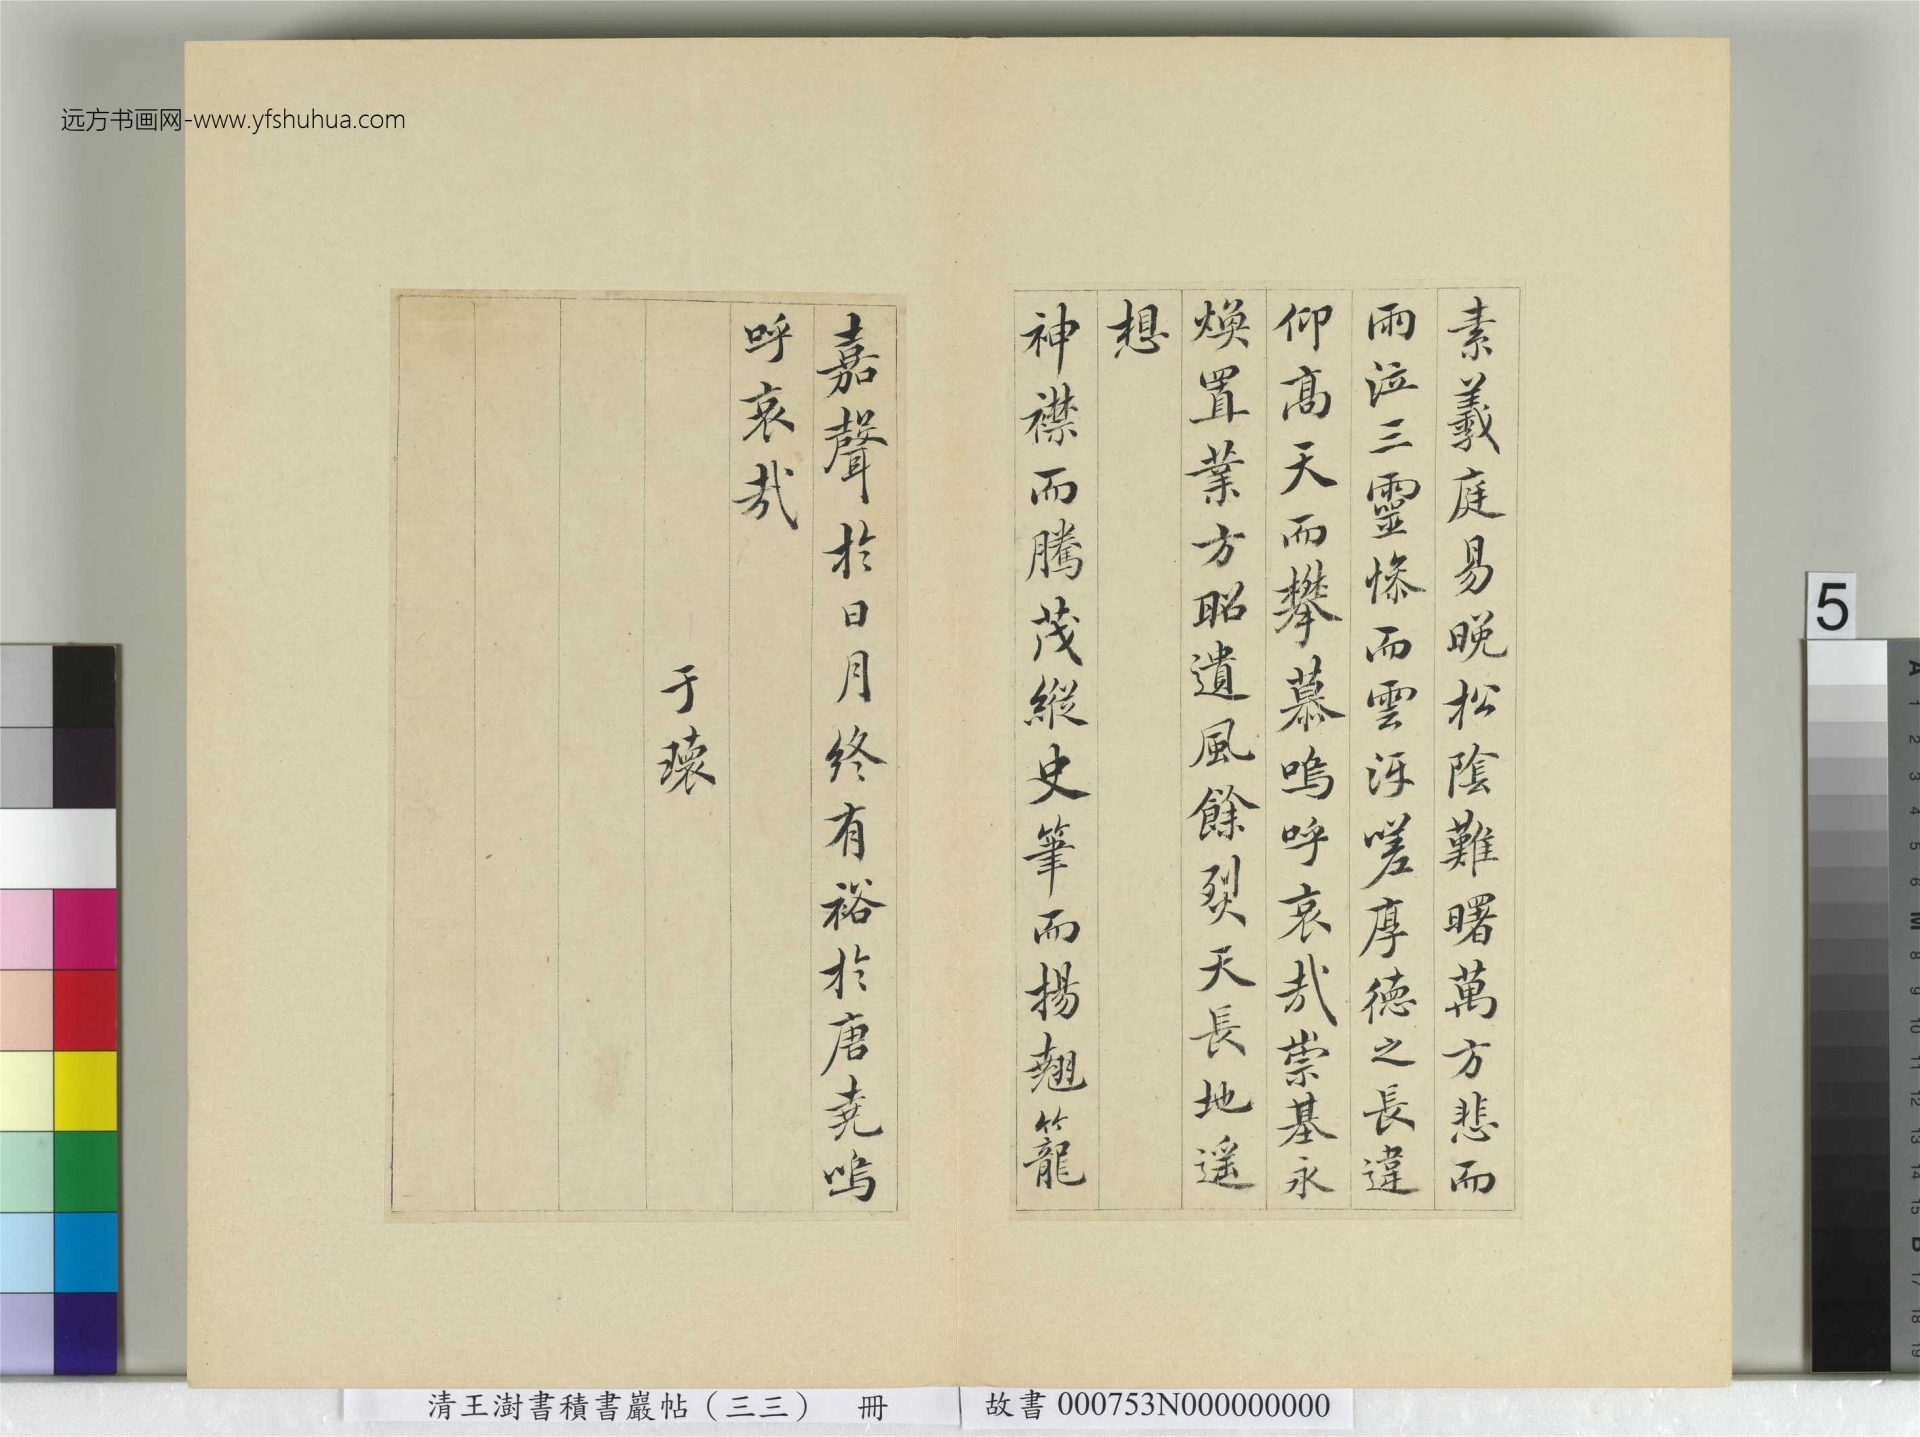 远方书画网-www.yfshuhua.com
素羲庭易晚松陰難曙萬方悲而
雨泣三靈慘而雲沍嗟厚德之長違
仰高天而攀慕嗚呼哀哉崇基永
煥置業方昭遺風餘烈天長地遥
想
神襟而騰茂縱史筆而揚翹籠
嘉聲於日月終有裕於唐堯嗚
呼哀哉
于瓌
5
清王澍書積書巖帖（三三） 冊
故書 000753N000000000
A 1 2 3 4 5 6 M 8 9 10 11 12 13 14 15 B 17 18 19